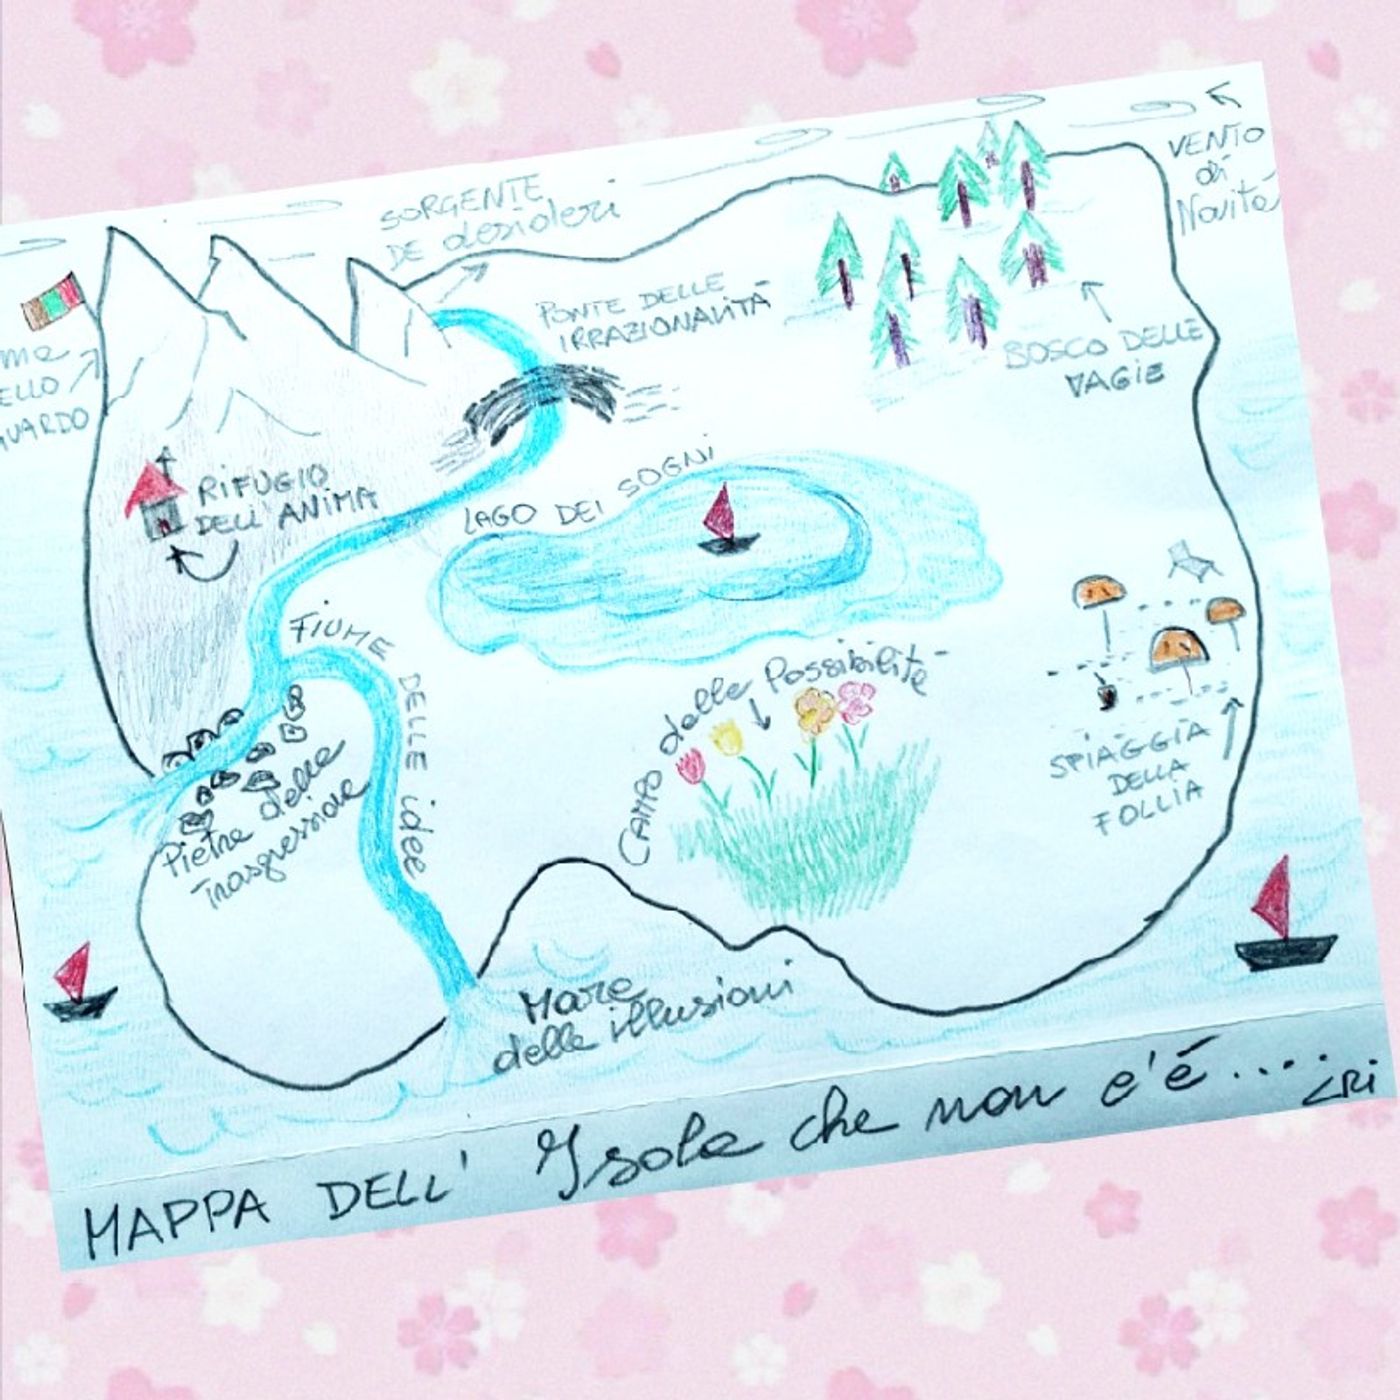 VENTO
di
Novità
SORGENTE
DE desideri
PONTE DELLE
IRRAZIONALITÀ
BOSCO DELLE
MAGIE
RIFUGIO
DELL'ANIMA
LAGO DEI SOGNI
FIUME DELLE idee
CAMPO delle Possibilità
SPIAGGIA
DELLA
FOLLIA
Pietre delle
Trasgressione
Mare
delle illusioni
MAPPA DELL' Isola che non c'è....